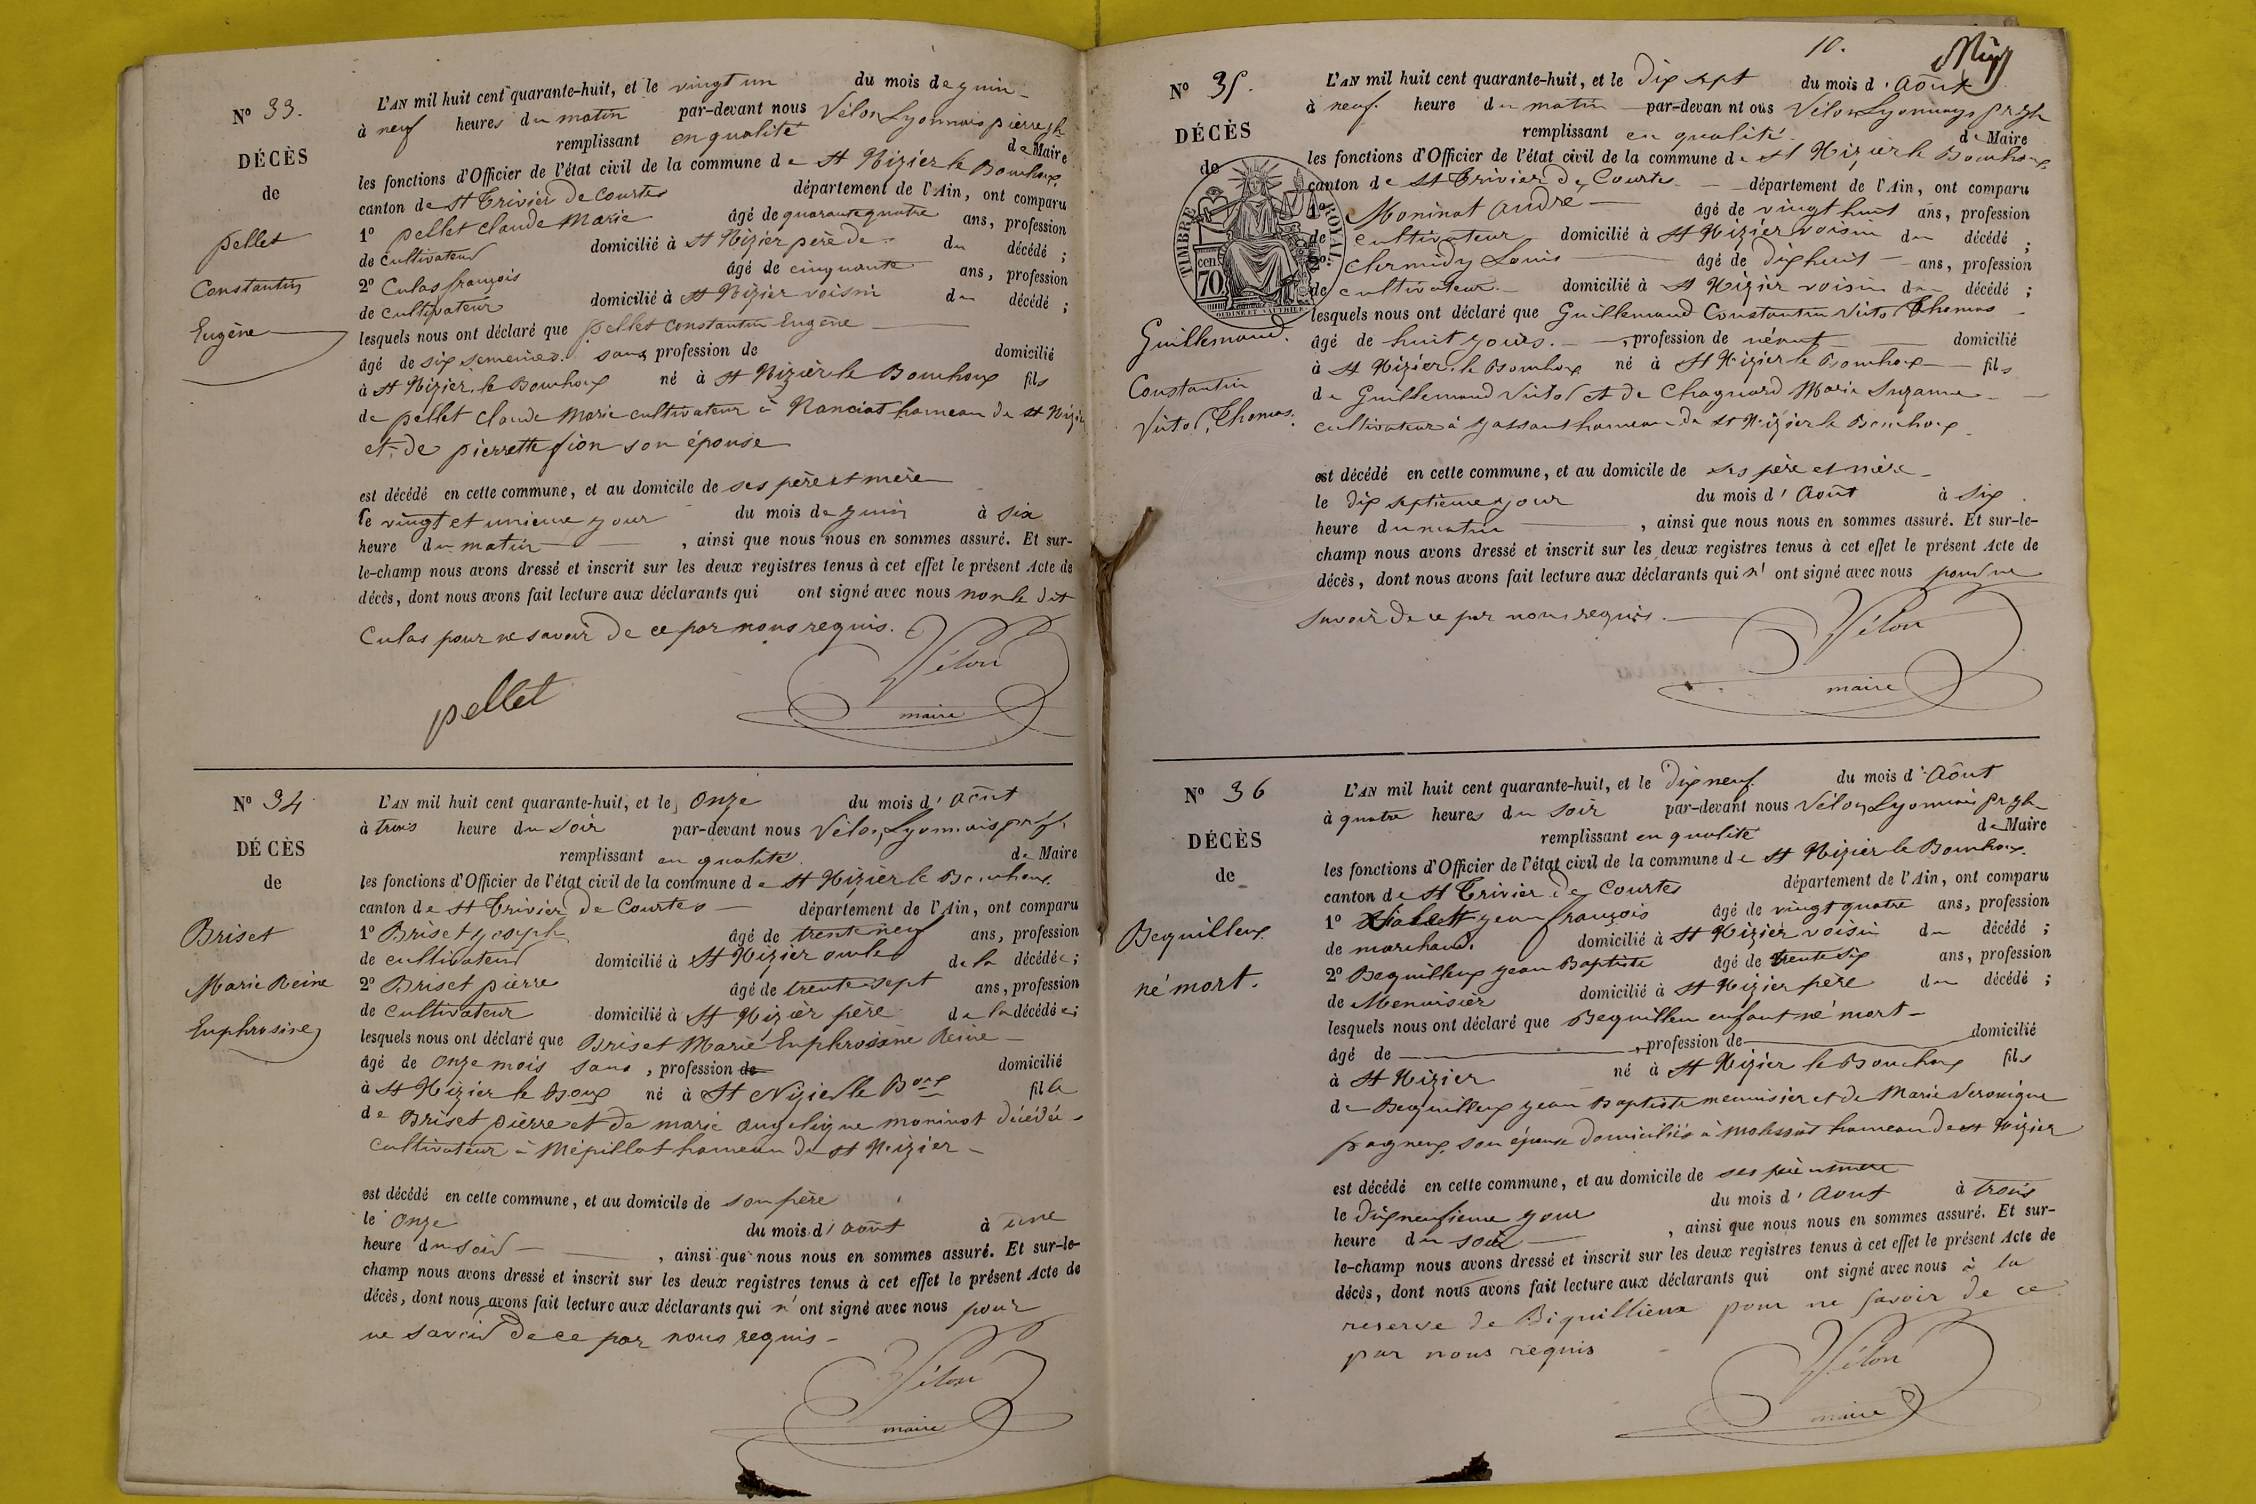 N° 33.
DÉCÈS
de
pellet
Constantin
Eugène
L'AN mil huit cent quarante-huit, et le vingt un du mois de juin
à neuf heures du matin par-devant nous Vélon Lyonnais pierre jh
remplissant en qualité de Maire
les fonctions d'Officier de l'état civil de la commune de St Nizier le Bouchoux
canton de St Trivier de Courtes département de l'Ain, ont comparu
1° pellet claude Marie âgé de quarante quatre ans, profession
de cultivateur domicilié à St Nizier père de du décédé ;
2° Culas françois âgé de cinquante ans, profession
de cultivateur domicilié à St Nizier voisin du décédé ;
lesquels nous ont déclaré que pellet constantin Eugène
âgé de six semeines sans profession de domicilié
à St Nizier le Bouchoux né à St Nizier le Bouchoux fils
de pellet claude Marie cultivateur à Nanciat hameau de St Nizier
et de pierrette fion son épouse
est décédé en cette commune, et au domicile de ses père et mère
le vingt et unieme jour du mois de juin à six
heure du matin , ainsi que nous nous en sommes assuré. Et sur-
le-champ nous avons dressé et inscrit sur les deux registres tenus à cet effet le présent Acte de
décès, dont nous avons fait lecture aux déclarants qui ont signé avec nous non le dit
Culas pour ne savoir de ce par nous requis.
Vélon
pellet maire
N° 34
DÉCÈS
de
Briset
Marie Reine
Euphrosine
L'AN mil huit cent quarante-huit, et le onze du mois d'Août
à trois heure du soir par-devant nous Vélon Lyonnais prre jh
remplissant en qualité de Maire
les fonctions d'Officier de l'état civil de la commune de St Nizier le Bouchoux
canton de St Trivier de Courtes département de l'Ain, ont comparu
1° Briset joseph âgé de trente neuf ans, profession
de cultivateur domicilié à St Nizier oncle de la décédée ;
2° Briset pierre âgé de trente sept ans, profession
de cultivateur domicilié à St Nizier père de la décédée ;
lesquels nous ont déclaré que Briset Marie Euphrosine Reine
âgé de onze mois sans , profession de domicilié
à St Nizier le Boux né à St Nizier le Boux fille
de Briset pierre et de marie angelique moninot décédée
cultivateur à Mépillat hameau de St Nizier
est décédé en cette commune, et au domicile de son père
le onze du mois d'août à une
heure du soir , ainsi que nous nous en sommes assuré. Et sur-le-
champ nous avons dressé et inscrit sur les deux registres tenus à cet effet le présent Acte de
décès, dont nous avons fait lecture aux déclarants qui n'ont signé avec nous pour
ne savoir de ce par nous requis
Vélon
maire
10.
N° 35.
DÉCÈS
de
TIMBRE ROYAL
70 cen
Guillemaud
Constantin
Victor, Thomas.
L'AN mil huit cent quarante-huit, et le dix sept du mois d'Août
à neuf heure du matin par-devan nt ous Vélon Lyonnays prre jh
remplissant en qualité de Maire
les fonctions d'Officier de l'état civil de la commune de St Nizier le Bouchoux
canton de St Trivier de Courtes département de l'Ain, ont comparu
1° Moninot André âgé de vingt huit ans, profession
de cultivateur domicilié à St Nizier voisin du décédé ;
2° Chermidy Louis âgé de dix huit ans, profession
de cultivateur domicilié à St Nizier voisin du décédé ;
lesquels nous ont déclaré que Guillemaud Constantin Victor Thomas
âgé de huit jours. , profession de néant domicilié
à St Nizier le Bouchoux né à St Nizier le Bouchoux fils
de Guillemaud Victor et de Chagnard Marie Suzanne
cultivateur à hameau de St Nizier le Bouchoux
est décédé en cette commune, et au domicile de ses père et mère
le dix septieme jour du mois d'Août à six
heure du matin , ainsi que nous nous en sommes assuré. Et sur-le-
champ nous avons dressé et inscrit sur les deux registres tenus à cet effet le présent Acte de
décès, dont nous avons fait lecture aux déclarants qui n'ont signé avec nous pour ne
savoir de ce par nous requis.
Vélon
maire
N° 36
DÉCÈS
de
Bequilleux
né mort.
L'AN mil huit cent quarante-huit, et le dix neuf du mois d'Août
à quatre heures du soir par-devant nous Vélon Lyonnais prre jh
remplissant en qualité de Maire
les fonctions d'Officier de l'état civil de la commune de St Nizier le Bouchoux
canton de St Trivier de Courtes département de l'Ain, ont comparu
1° jean françois âgé de vingt quatre ans, profession
de marchand domicilié à St Nizier voisin du décédé ;
2° Bequilleux jean Baptiste âgé de trente six ans, profession
de Menuisier domicilié à St Nizier père du décédé ;
lesquels nous ont déclaré que Bequilleu enfant né mort
âgé de , profession de domicilié
à St Nizier né à St Nizier le Bouchoux fils
de Bequilleux jean Baptiste menuisier et de Marie Veronique
pagneux son épouse domiciliés à hameau de St Nizier
est décédé en cette commune, et au domicile de ses père et mere
le dix neufieme jour du mois d'Aout à trois
heure du soir , ainsi que nous nous en sommes assuré. Et sur-
le-champ nous avons dressé et inscrit sur les deux registres tenus à cet effet le présent Acte de
décès, dont nous avons fait lecture aux déclarants qui ont signé avec nous à la
reserve de Biquillieux pour ne savoir de ce
par nous requis
Vélon
maire